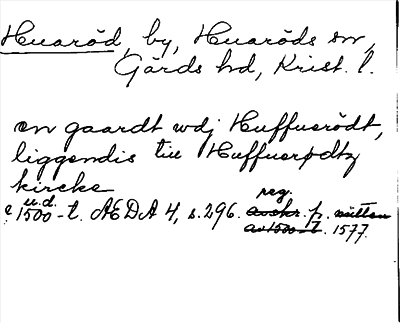 Huaröd, by, Huaröds sn,
Gärds hd, Krist. l.
en gaardt vdj Huffuerödt,
liggendis till Huffuerødtz
kircke
u.d. reg.
c 1500-t. ÆDA 4, s. 296. avskr. p. mitten
av 1500-t. 1577.